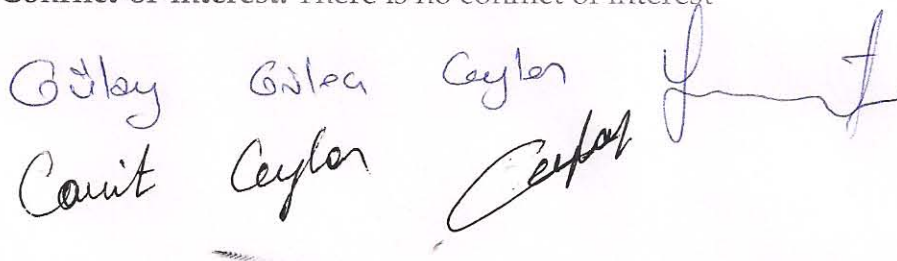 Conflict of Interest: There is no conflict of interest
Gülay Gülea Ceylan
Cavit Ceylan